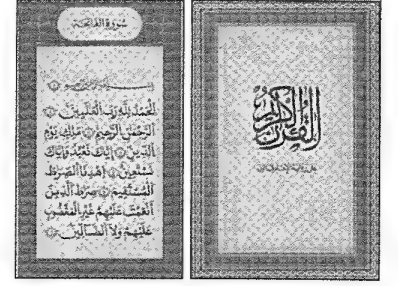 سُورَةُ الفَاتِحَة
بِسْمِ
الْحَمْدُ لِلَّهِ رَبِّ الْعَالَمِينَ
الرَّحْمَنِ الرَّحِيمِ مَالِكِ يَوْمِ
الدِّينِ إِيَّاكَ نَعْبُدُ وَإِيَّاكَ
نَسْتَعِينُ اهْدِنَا الصِّرَاطَ
الْمُسْتَقِيمَ صِرَاطَ الَّذِينَ
أَنْعَمْتَ عَلَيْهِمْ غَيْرِ الْمَغْضُوبِ
عَلَيْهِمْ وَلَا الضَّالِّينَ
القرآن الكريم